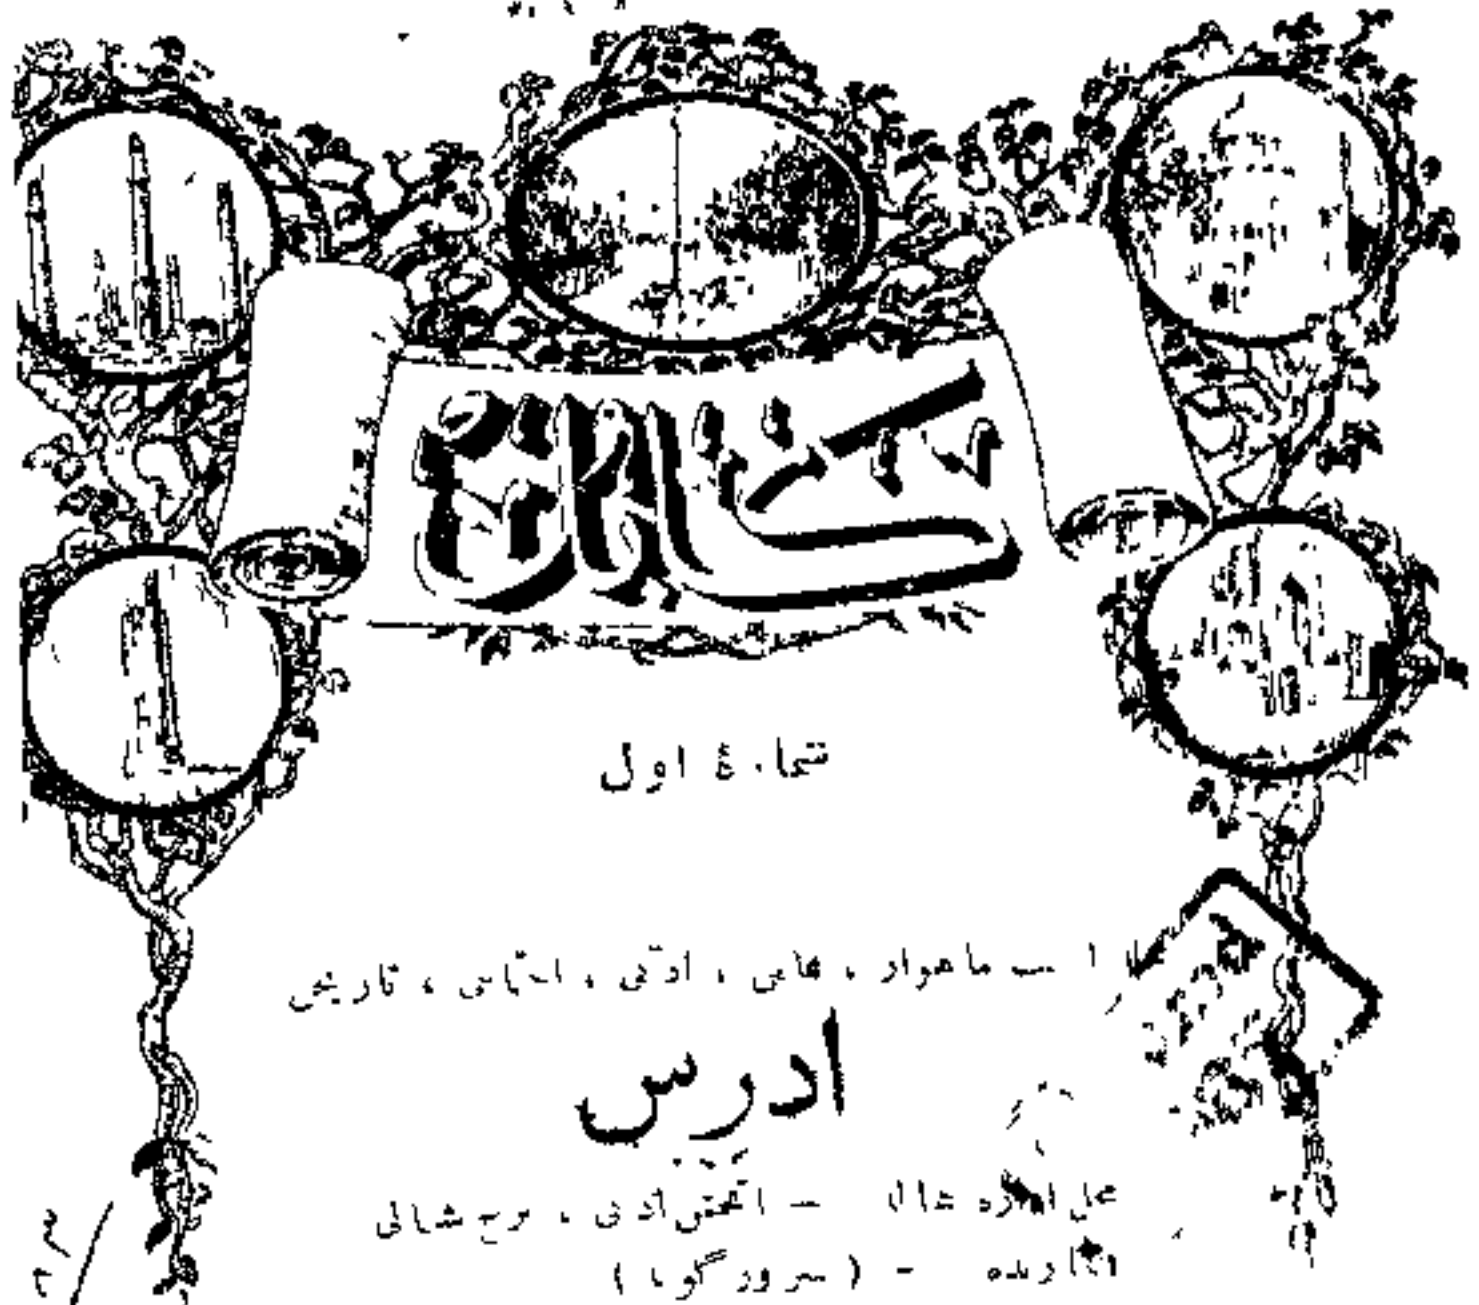 کابل
شمارهٔ اول
ماهوار ، علمی ، ادبی ، اجتماعی ، تاریخی
ادرس
محل اداره – انجمن ادبی ، برج شمالی
نگارنده – ( سرور گویا )